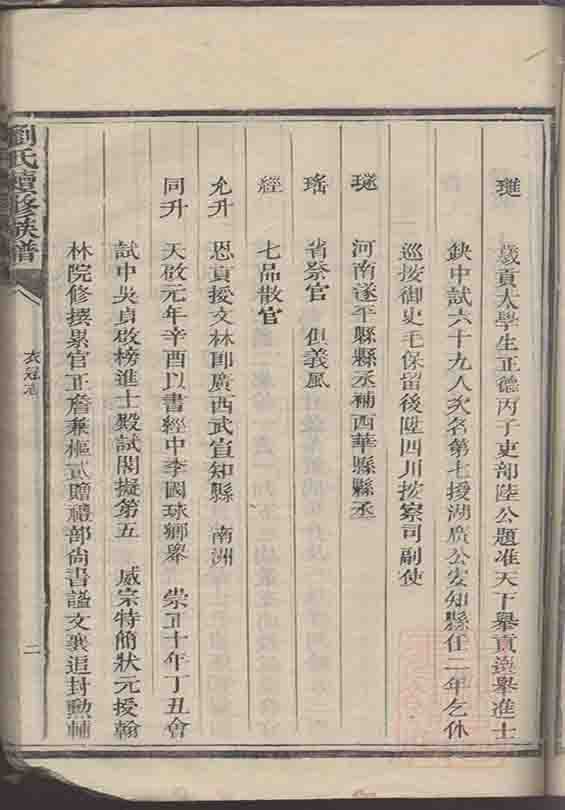 璡 歲貢太學生正德丙子吏部陸公題准天下舉貢選舉進士
缺中試六十九人次名第七授湖廣公安知縣任二年乞休
巡按御史毛保留後陞四川按察司副使
璲 河南遂平縣縣丞補西華縣縣丞
瑤 省祭官 但義風
經 七品散官
允升 恩貢授文林郎廣西武宣知縣 南洲
同升 天啟元年辛酉以書經中李國球鄉舉 崇正十年丁丑會
試中吳貞啟榜進士殿試閣擬第五 威宗特簡狀元授翰
林院修撰累官正詹兼樞貳贈禮部尚書謚文襄追封勲輔
劉氏續修族譜
衣冠志
二